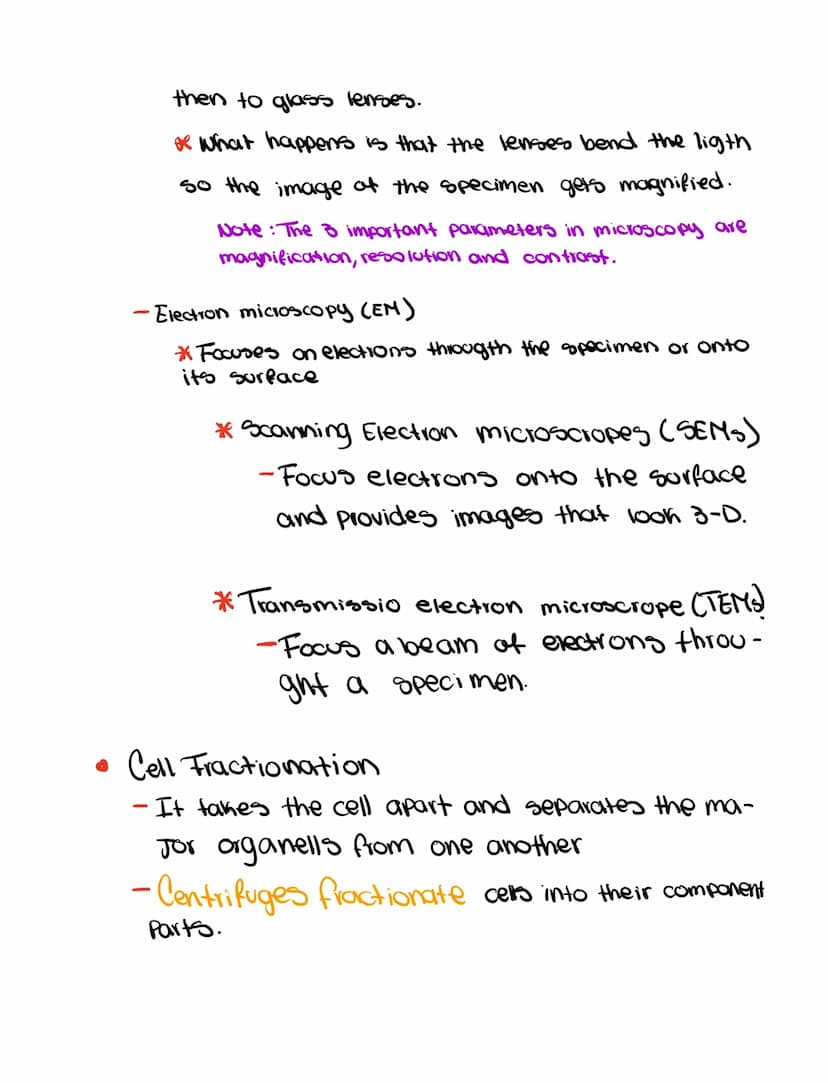 then to glass lenses.
* What happens is that the lenses bend the ligth
so the image of the specimen gets magnified.
Note: The 3 important parameters in microscopy are
magnification, resolution and contrast.
- Electron microscopy (EM)
* Focuses on electrons througth the specimen or onto
its surface
* Scanning Electron microscropes (SEMs)
- Focus electrons onto the surface
and provides images that look 3-D.
* Transmissio electron microscrope (TEMs)
- Focus a beam of electrons throu-
ght a specimen.
• Cell Fractionation
- It takes the cell apart and separates the ma-
jor organells from one another
- Centrifuges fractionate cells into their component
parts.